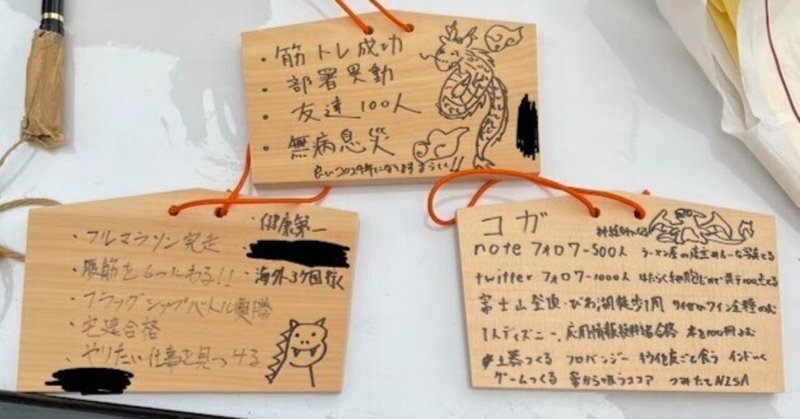 ・筋トレ成功
・部署異動
・友達100人
・無病息災
良い2024年になりますように!!
・フルマラソン完走
・腹筋を6つにわる!!
・フラッグシップバトル優勝
・宅建合格
・やりたい仕事を見つける
・健康第一
・海外3ケ国行く
コガ
noteフォロワー500人 ラーメン屋の店主みたいな写真とる
twitterフォロワー1000人 はたらく細胞
富士山登頂・びわ湖徒歩1周 ワイン全種のむ
1人ディズニー、応用情報技術者合格 本を100冊よむ
土器つくる フロバンジー キウイを皮ごと食う インドへ
ゲームつくる 鼻から吸うココア つみたてNISA